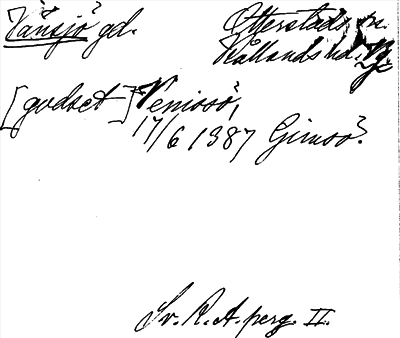 Vänsjö gd. Otterstads sn.
Kållands hd. Vg.
[godset] Veniosö,
17/6 1387 Gimsö.
Sv. R. A. perg. II.